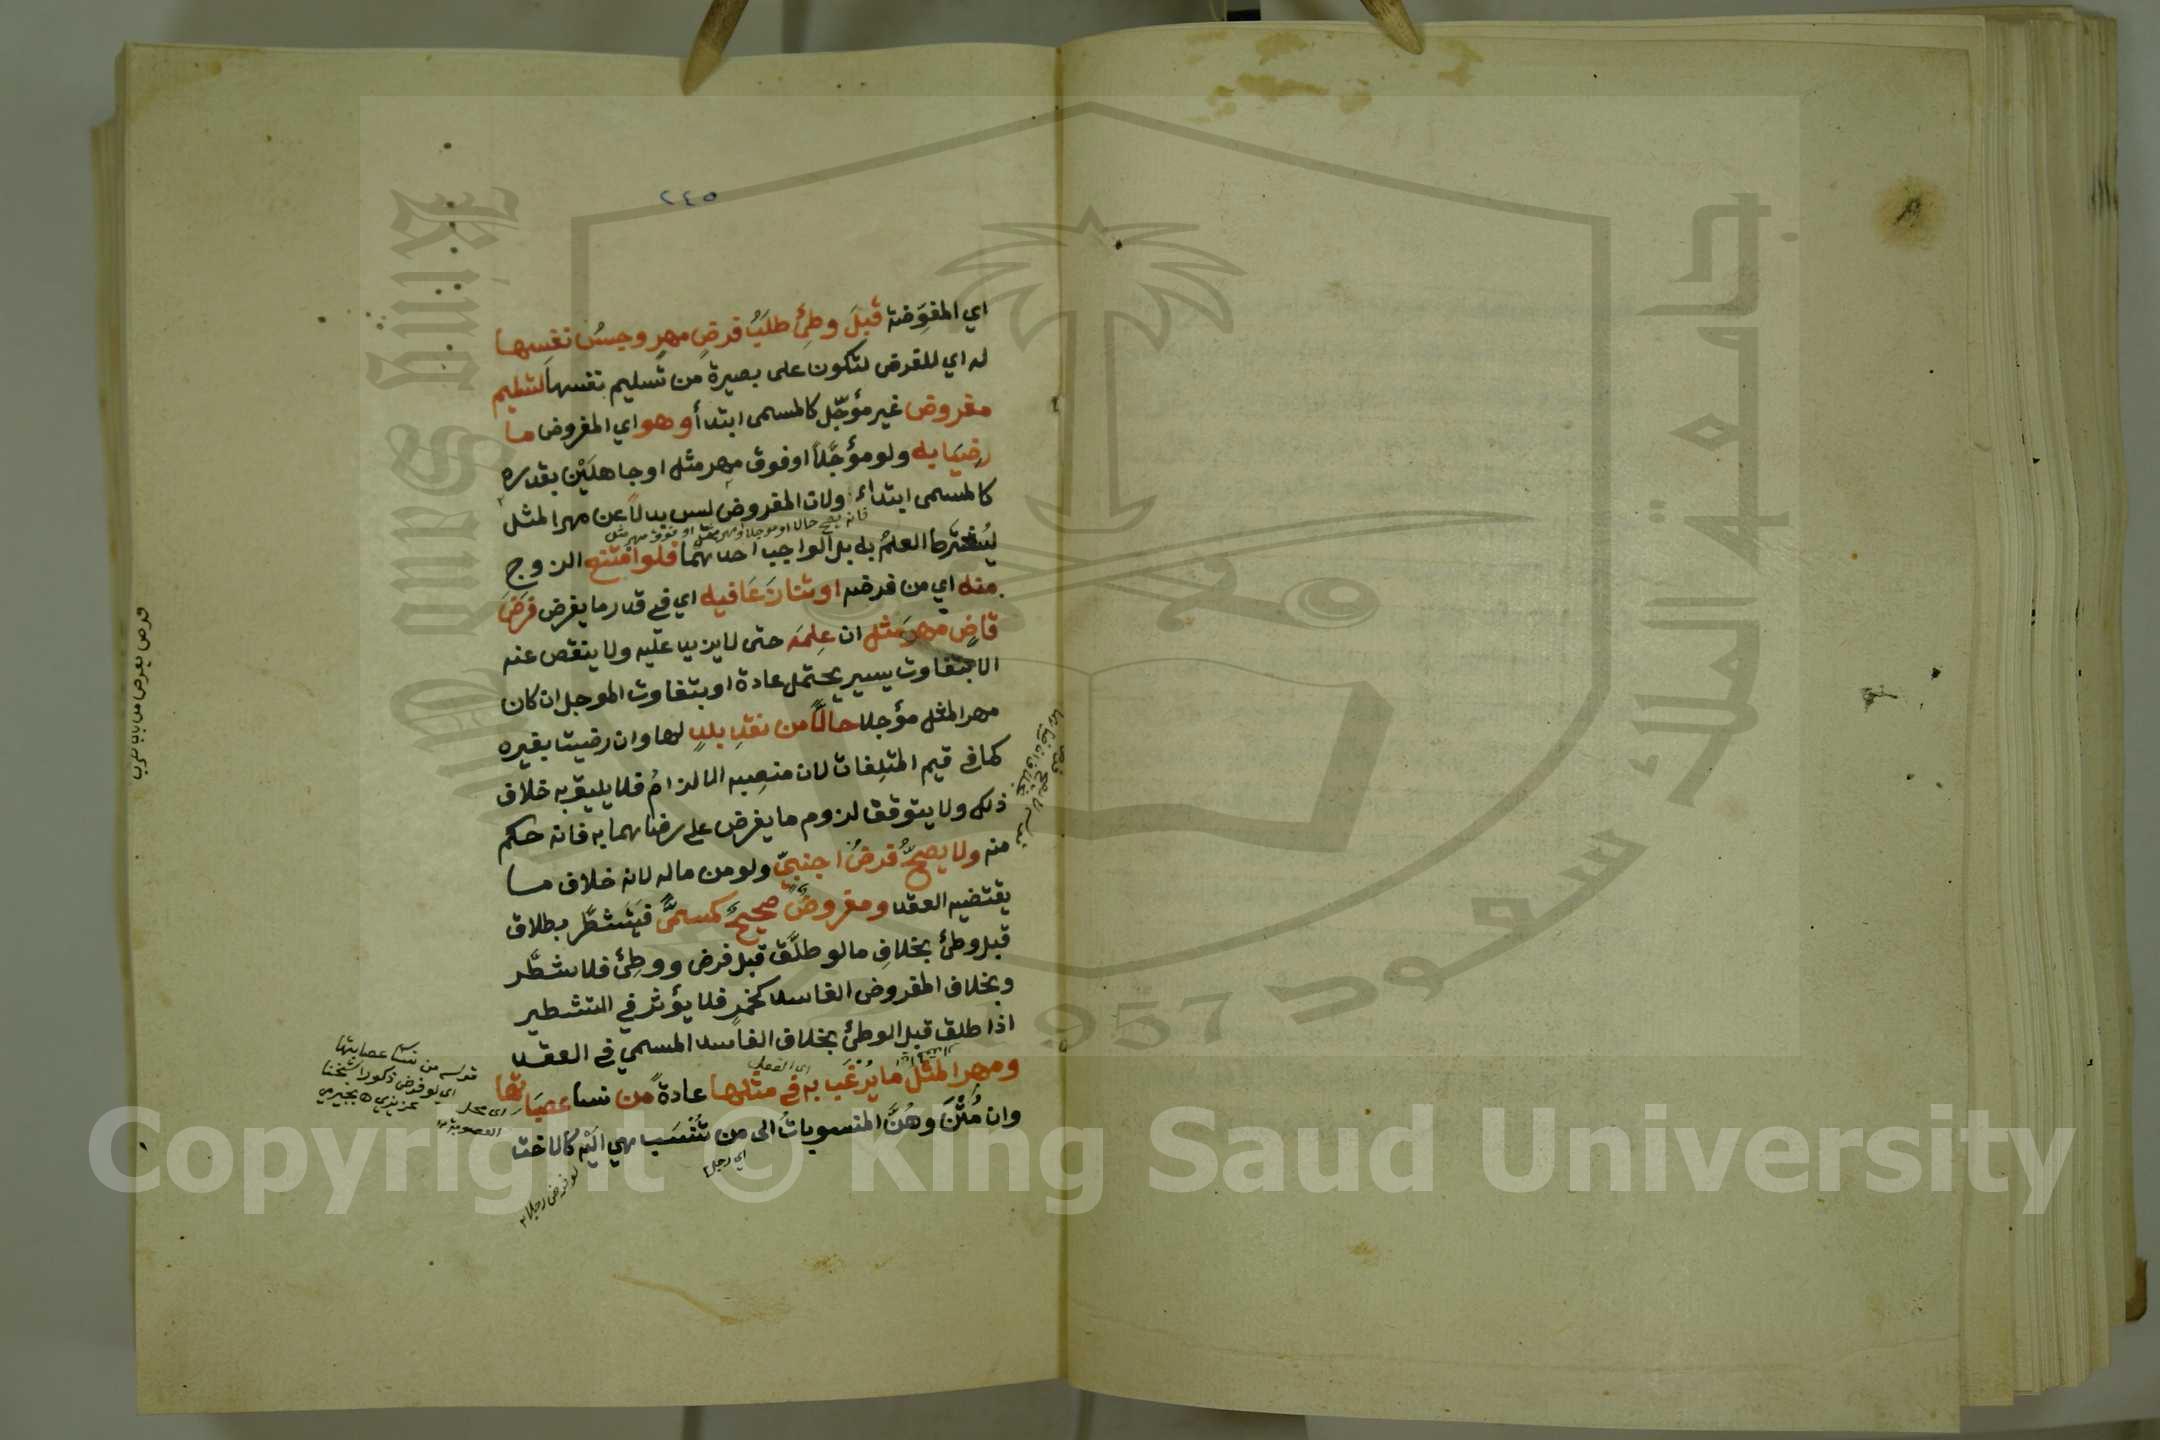 ٢٤٥
اي المفوِّضة قبلَ وطئٍ طلبُ فرضِ مهرٍ وحبسُ نفسِها
له اي للفرض لتكون على بصيرة من تسليم نفسها لتسليم
مفروض غير مؤجّل كالمسمى ابتدأ وهو اي المفروض ما
رضيَا به ولو مؤجَّلاً او فوق مهر مثل او جاهلَيْن بقدره
كالمسمى ابتداء ولان المفروض ليس بدلاً عن مهر المثل
ليُشترط العلمُ به بل الواجب احدهما فلو امتنع الزوج
منه اي من فرضه او تنازَعَا فيه اي في قدر ما يفرض فرَضَ
قاضٍ مهرَ مثل ان علِمَه حتى لا يزيد عليه ولا ينقص عنه
الا بتفاوت يسير يحتمل عادة او بتفاوت الموجل ان كان
مهر المثل مؤجلا حالًّا من نقدِ بلدٍ لها وان رضيت بغيره
كما في قيم المتلِفات لان منصِبه الالزامُ فلا يليق به خلاف
ذلك ولا يتوقف لزوم ما يفرض على رضاهما به فانه حكم
منه ولا يصحُّ فرضُ اجنبيّ ولو من ماله لانه خلاف مسا
يقتضيه العقد ومفروضٌ صحيحٌ كمسمًّى فيَتَشطَّر بطلاق
قبل وطئ بخلافِ ما لو طلَّق قبل فرض ووطِئ فلا تشطَّر
وبخلاف المفروض الفاسد كخمرٍ فلا يؤثر في التشطير
اذا طلق قبل الوطئ بخلاف الفاسد المسمي في العقد
ومهر المثل ما يُرغَب به في مثلها عادةً من نسا عصبَاتها
وان مُتْنَ وهُنَّ المنسوباتُ الى من تُنْسَب هي اليْه كالاخت
فانه يصح حالا او موجلا او مهر مثل او فوق مهر مثل
قوله من نسا عصابتها
اي لو فرض ذكورا شيخنا
عزيزي ه بجيرمي
اي رجلا
لو فرض رجلا
Copyright © King Saud University
King Saud University
جامعة الملك سعود
1957